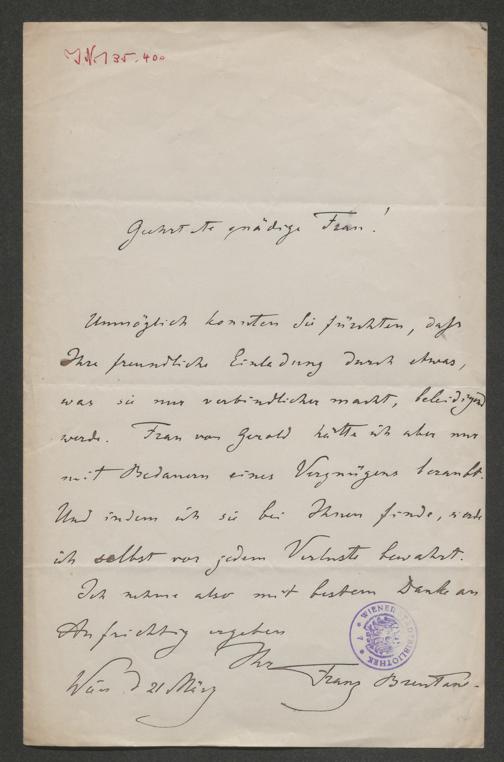 I.N. 135.400
Geehrteste gnädige Frau!
Unmöglich konnten Sie fürchten, daß
Ihre freundliche Einladung durch etwas,
was sie nur verbindlicher macht, beleidigend
werde. Frau von Gerold hätte ich aber nur
mit Bedauern eines Vergnügens beraubt.
Und indem ich sie bei Ihnen finde, werde
ich selbst vor jedem Verluste bewahrt.
Ich nehme also mit bestem Danke an
Aufrichtig ergeben
Ihr
Franz Brentano.
Wien d 21 März
WIENER STADTBIBLIOTHEK